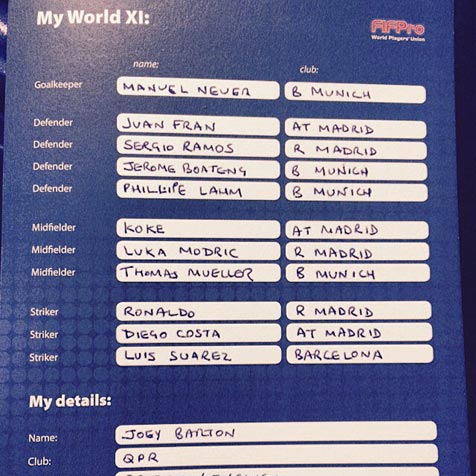 My World XI:
FIFPro
World Players' Union
name: club:
Goalkeeper MANUEL NEUER B MUNICH
Defender JUAN FRAN AT MADRID
Defender SERGIO RAMOS R MADRID
Defender JEROME BOATENG B MUNICH
Defender PHILLIPE LAHM B MUNICH
Midfielder KOKE AT MADRID
Midfielder LUKA MODRIC R MADRID
Midfielder THOMAS MUELLER B MUNICH
Striker RONALDO R MADRID
Striker DIEGO COSTA AT MADRID
Striker LUIS SUAREZ BARCELONA
My details:
Name: JOEY BARTON
Club: QPR